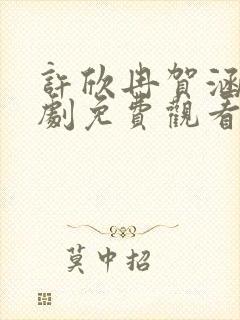 許欣冉賀涵
劇免費觀看
莫中招